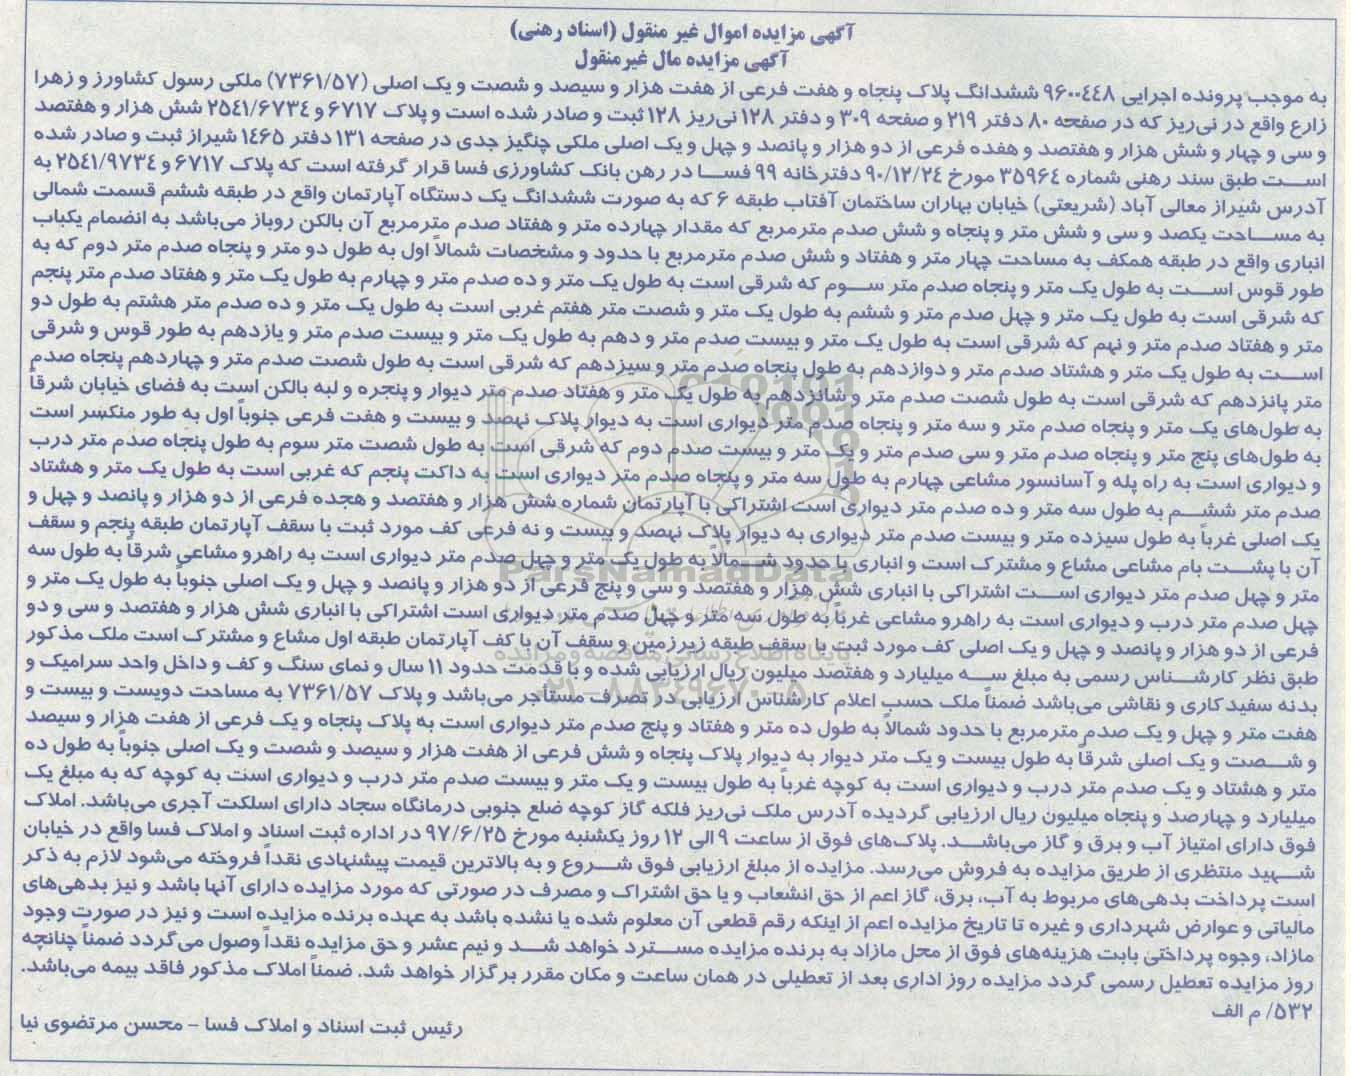 آگهی مزایده اموال غیر منقول (اسناد رهنی)
آگهی مزایده مال غیرمنقول
به موجب پرونده اجرایی ۹۶۰۰۴۴۸ ششدانگ پلاک پنجاه و هفت فرعی از هفت هزار و سیصد و شصت و یک اصلی (۷۳۶۱/۵۷) ملکی رسول کشاورز و زهرا
زارع واقع در نی‌ریز که در صفحه ۸۰ دفتر ۲۱۹ و صفحه ۳۰۹ و دفتر ۱۲۸ نی‌ریز ۱۲۸ ثبت و صادر شده است و پلاک ۶۷۱۷ و ۲۵۴۱/۶۷۳۴ شش هزار و هفتصد
و سی و چهار و شش هزار و هفتصد و هفده فرعی از دو هزار و پانصد و چهل و یک اصلی ملکی چنگیز جدی در صفحه ۱۳۱ دفتر ۱۴۶۵ شیراز ثبت و صادر شده
است طبق سند رهنی شماره ۳۵۹۶۴ مورخ ۹۰/۱۲/۲۴ دفترخانه ۹۹ فسا در رهن بانک کشاورزی فسا قرار گرفته است که پلاک ۶۷۱۷ و ۲۵۴۱/۹۷۳۴ به
آدرس شیراز معالی آباد (شریعتی) خیابان بهاران ساختمان آفتاب طبقه ۶ که به صورت ششدانگ یک دستگاه آپارتمان واقع در طبقه ششم قسمت شمالی
به مساحت یکصد و سی و شش متر و پنجاه و شش صدم مترمربع که مقدار چهارده متر و هفتاد صدم مترمربع آن بالکن روباز می‌باشد به انضمام یکباب
انباری واقع در طبقه همکف به مساحت چهار متر و هفتاد و شش صدم مترمربع با حدود و مشخصات شمالاً اول به طول دو متر و پنجاه صدم متر دوم که به
طور قوس است به طول یک متر و پنجاه صدم متر سوم که شرقی است به طول یک متر و ده صدم متر و چهارم به طول یک متر و هفتاد صدم متر پنجم
که شرقی است به طول یک متر و چهل صدم متر و ششم به طول یک متر و شصت متر هفتم غربی است به طول یک متر و ده صدم متر هشتم به طول دو
متر و هفتاد صدم متر و نهم که شرقی است به طول یک متر و بیست صدم متر و دهم به طول یک متر و بیست صدم متر و یازدهم به طور قوس و شرقی
است به طول یک متر و هشتاد صدم متر و دوازدهم به طول پنجاه صدم متر و سیزدهم که شرقی است به طول شصت صدم متر و چهاردهم پنجاه صدم
متر پانزدهم که شرقی است به طول شصت صدم متر و شانزدهم به طول یک متر و هفتاد صدم متر دیوار و پنجره و لبه بالکن است به فضای خیابان شرقاً
به طول‌های یک متر و پنجاه صدم متر و سه متر و پنجاه صدم متر دیواری است به دیوار پلاک نهصد و بیست و هفت فرعی جنوباً اول به طور منکسر است
به طول‌های پنج متر و پنجاه صدم متر و سی صدم متر و یک متر و بیست صدم دوم که شرقی است به طول شصت متر سوم به طول پنجاه صدم متر درب
و دیواری است به راه پله و آسانسور مشاعی چهارم به طول سه متر و پنجاه صدم متر دیواری است به داکت پنجم که غربی است به طول یک متر و هشتاد
صدم متر ششم به طول سه متر و ده صدم متر دیواری است اشتراکی با آپارتمان شماره شش هزار و هفتصد و هجده فرعی از دو هزار و پانصد و چهل و
یک اصلی غرباً به طول سیزده متر و بیست صدم متر دیواری به دیوار پلاک نهصد و بیست و نه فرعی کف مورد ثبت با سقف آپارتمان طبقه پنجم و سقف
آن با پشت بام مشاعی مشاع و مشترک است و انباری با حدود شمالاً به طول یک متر و چهل صدم متر دیواری است به راهرو مشاعی شرقاً به طول سه
متر و چهل صدم متر دیواری است اشتراکی با انباری شش هزار و هفتصد و سی و پنج فرعی از دو هزار و پانصد و چهل و یک اصلی جنوباً به طول یک متر و
چهل صدم متر درب و دیواری است به راهرو مشاعی غرباً به طول سه متر و چهل صدم متر دیواری است اشتراکی با انباری شش هزار و هفتصد و سی و دو
فرعی از دو هزار و پانصد و چهل و یک اصلی کف مورد ثبت با سقف طبقه زیرزمین و سقف آن با کف آپارتمان طبقه اول مشاع و مشترک است ملک مذکور
طبق نظر کارشناس رسمی به مبلغ سه میلیارد و هفتصد میلیون ریال ارزیابی شده و با قدمت حدود ۱۱ سال و نمای سنگ و کف و داخل واحد سرامیک و
بدنه سفیدکاری و نقاشی می‌باشد ضمناً ملک حسب اعلام کارشناس ارزیابی در تصرف مستأجر می‌باشد و پلاک ۷۳۶۱/۵۷ به مساحت دویست و بیست و
هفت متر و چهل و یک صدم مترمربع با حدود شمالاً به طول ده متر و هفتاد و پنج صدم متر دیواری است به پلاک پنجاه و یک فرعی از هفت هزار و سیصد
و شصت و یک اصلی شرقاً به طول بیست و یک متر دیوار به دیوار پلاک پنجاه و شش فرعی از هفت هزار و سیصد و شصت و یک اصلی جنوباً به طول ده
متر و هشتاد و یک صدم متر درب و دیواری است به کوچه غرباً به طول بیست و یک متر و بیست صدم متر درب و دیواری است به کوچه که به مبلغ یک
میلیارد و چهارصد و پنجاه میلیون ریال ارزیابی گردیده آدرس ملک نی‌ریز فلکه گاز کوچه ضلع جنوبی درمانگاه سجاد دارای اسلکت آجری می‌باشد. املاک
فوق دارای امتیاز آب و برق و گاز می‌باشد. پلاک‌های فوق از ساعت ۹ الی ۱۲ روز یکشنبه مورخ ۹۷/۶/۲۵ در اداره ثبت اسناد و املاک فسا واقع در خیابان
شهید منتظری از طریق مزایده به فروش می‌رسد. مزایده از مبلغ ارزیابی فوق شروع و به بالاترین قیمت پیشنهادی نقداً فروخته می‌شود لازم به ذکر
است پرداخت بدهی‌های مربوط به آب، برق، گاز اعم از حق انشعاب و یا حق اشتراک و مصرف در صورتی که مورد مزایده دارای آنها باشد و نیز بدهی‌های
مالیاتی و عوارض شهرداری و غیره تا تاریخ مزایده اعم از اینکه رقم قطعی آن معلوم شده یا نشده باشد به عهده برنده مزایده است و نیز در صورت وجود
مازاد، وجوه پرداختی بابت هزینه‌های فوق از محل مازاد به برنده مزایده مسترد خواهد شد و نیم عشر و حق مزایده نقداً وصول می‌گردد ضمناً چنانچه
روز مزایده تعطیل رسمی گردد مزایده روز اداری بعد از تعطیلی در همان ساعت و مکان مقرر برگزار خواهد شد. ضمناً املاک مذکور فاقد بیمه می‌باشد.
۵۳۲/ م الف
رئیس ثبت اسناد و املاک فسا - محسن مرتضوی نیا
ParsNamadData
پایگاه اطلاع رسانی مناقصه و مزایده
۰۲۱-۸۸۳۴۹۶۷۰-۵